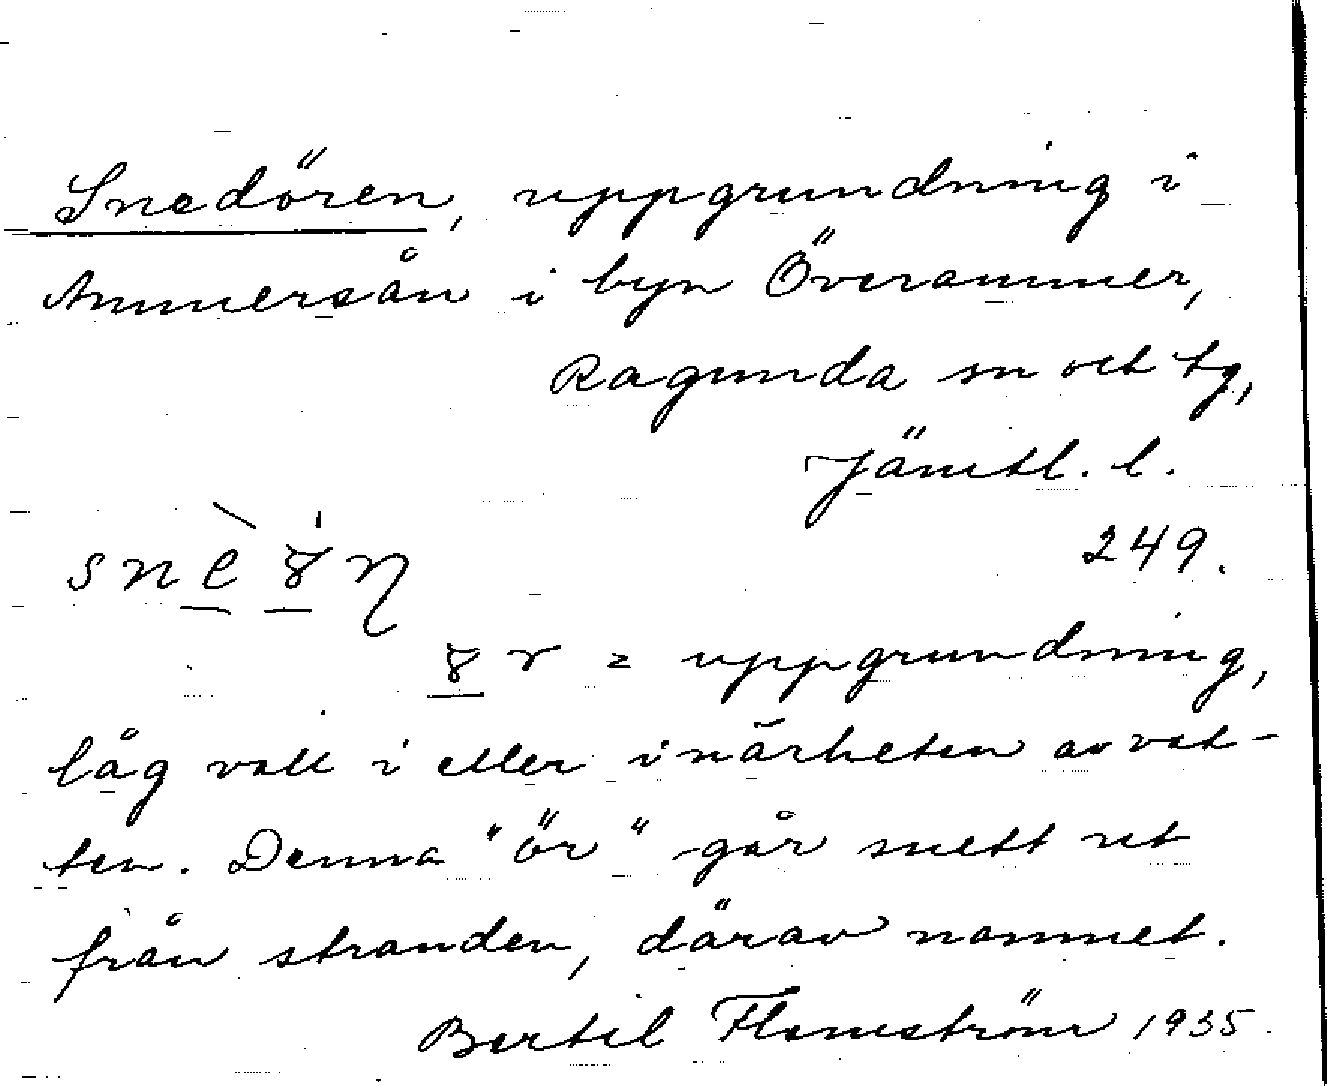 Snedören, uppgrundning i
Ammerån i byn Överammer,
Ragunda sn och tg,
Jämtl. l.
249.
= uppgrundning,
låg vall i eller i närheten av vat-
ten. Denna "ör" går snett ut
från stranden, därav namnet.
Bertil Flemström 1935.